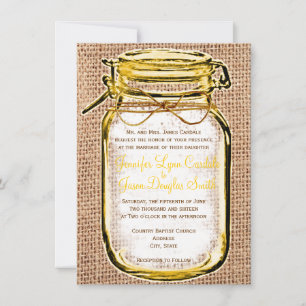 Mr. and Mrs. James Candale
request the honor of your presence
at the marriage of their daughter
Jennifer Lynn Candale
to
Jason Douglas Smith
Saturday, the fifteenth of June
two thousand and sixteen
at Two o'clock in the afternoon
Country Baptist Church
Address
City, State
Reception to Follow